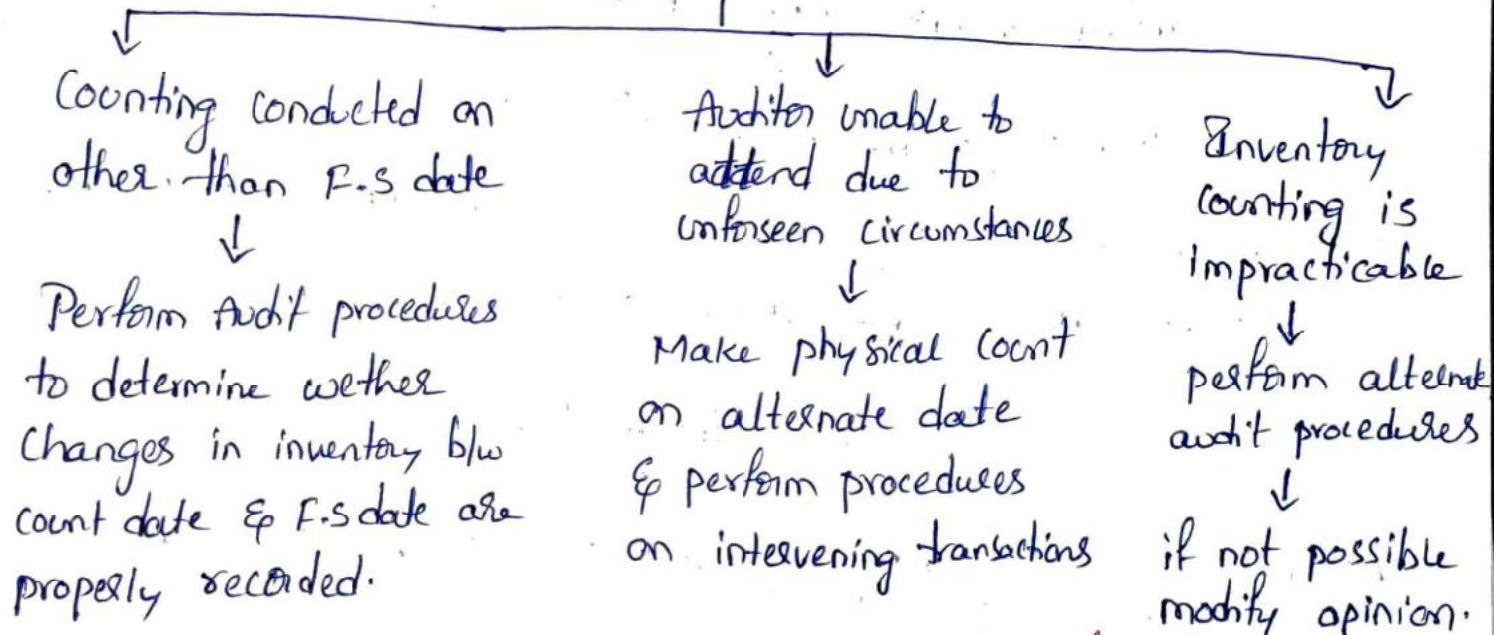 Counting conducted on
other than F.S date
Perform Audit procedures
to determine wether
Changes in inventory b/w
count date & F.S date are
properly recorded.
Auditor unable to
addtend due to
unforseen circumstances
Make physical count
on alternate date
& perform procedures
on intervening transactions
Inventory
counting is
impracticable
perform alternate
audit procedures
if not possible
modify opinion.